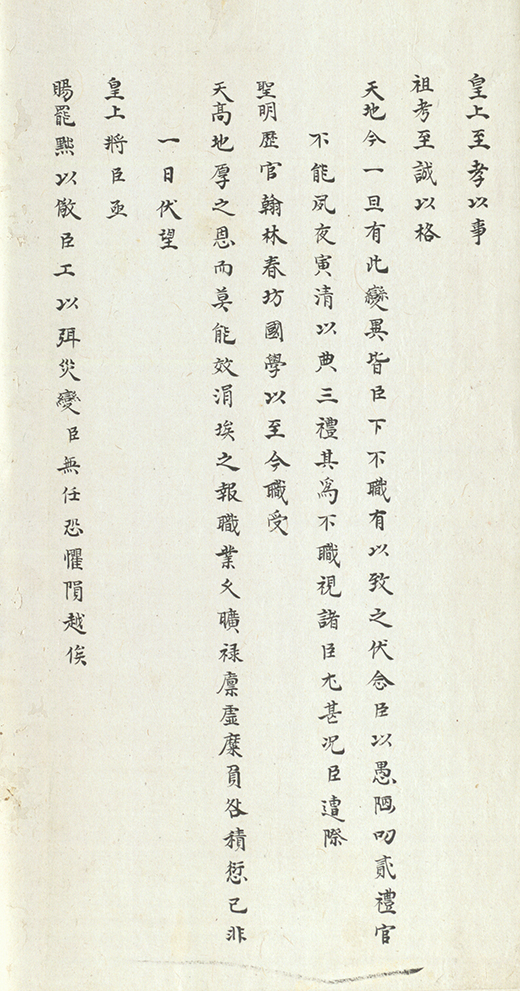 皇上至孝以事
祖考至誠以格
天地今一旦有此變異皆臣下不職有以致之伏念臣以愚陋叨貳禮官
不能夙夜寅清以典三禮其爲不職視諸臣尤甚况臣遭際
聖明歷官翰林春坊國學以至今職受
天髙地厚之恩而莫能效涓埃之報職業久曠禄廪虚糜負咎積愆已非
一日伏望
皇上將臣亟
賜罷黜以儆臣工以弭災變臣無任恐懼隕越俟